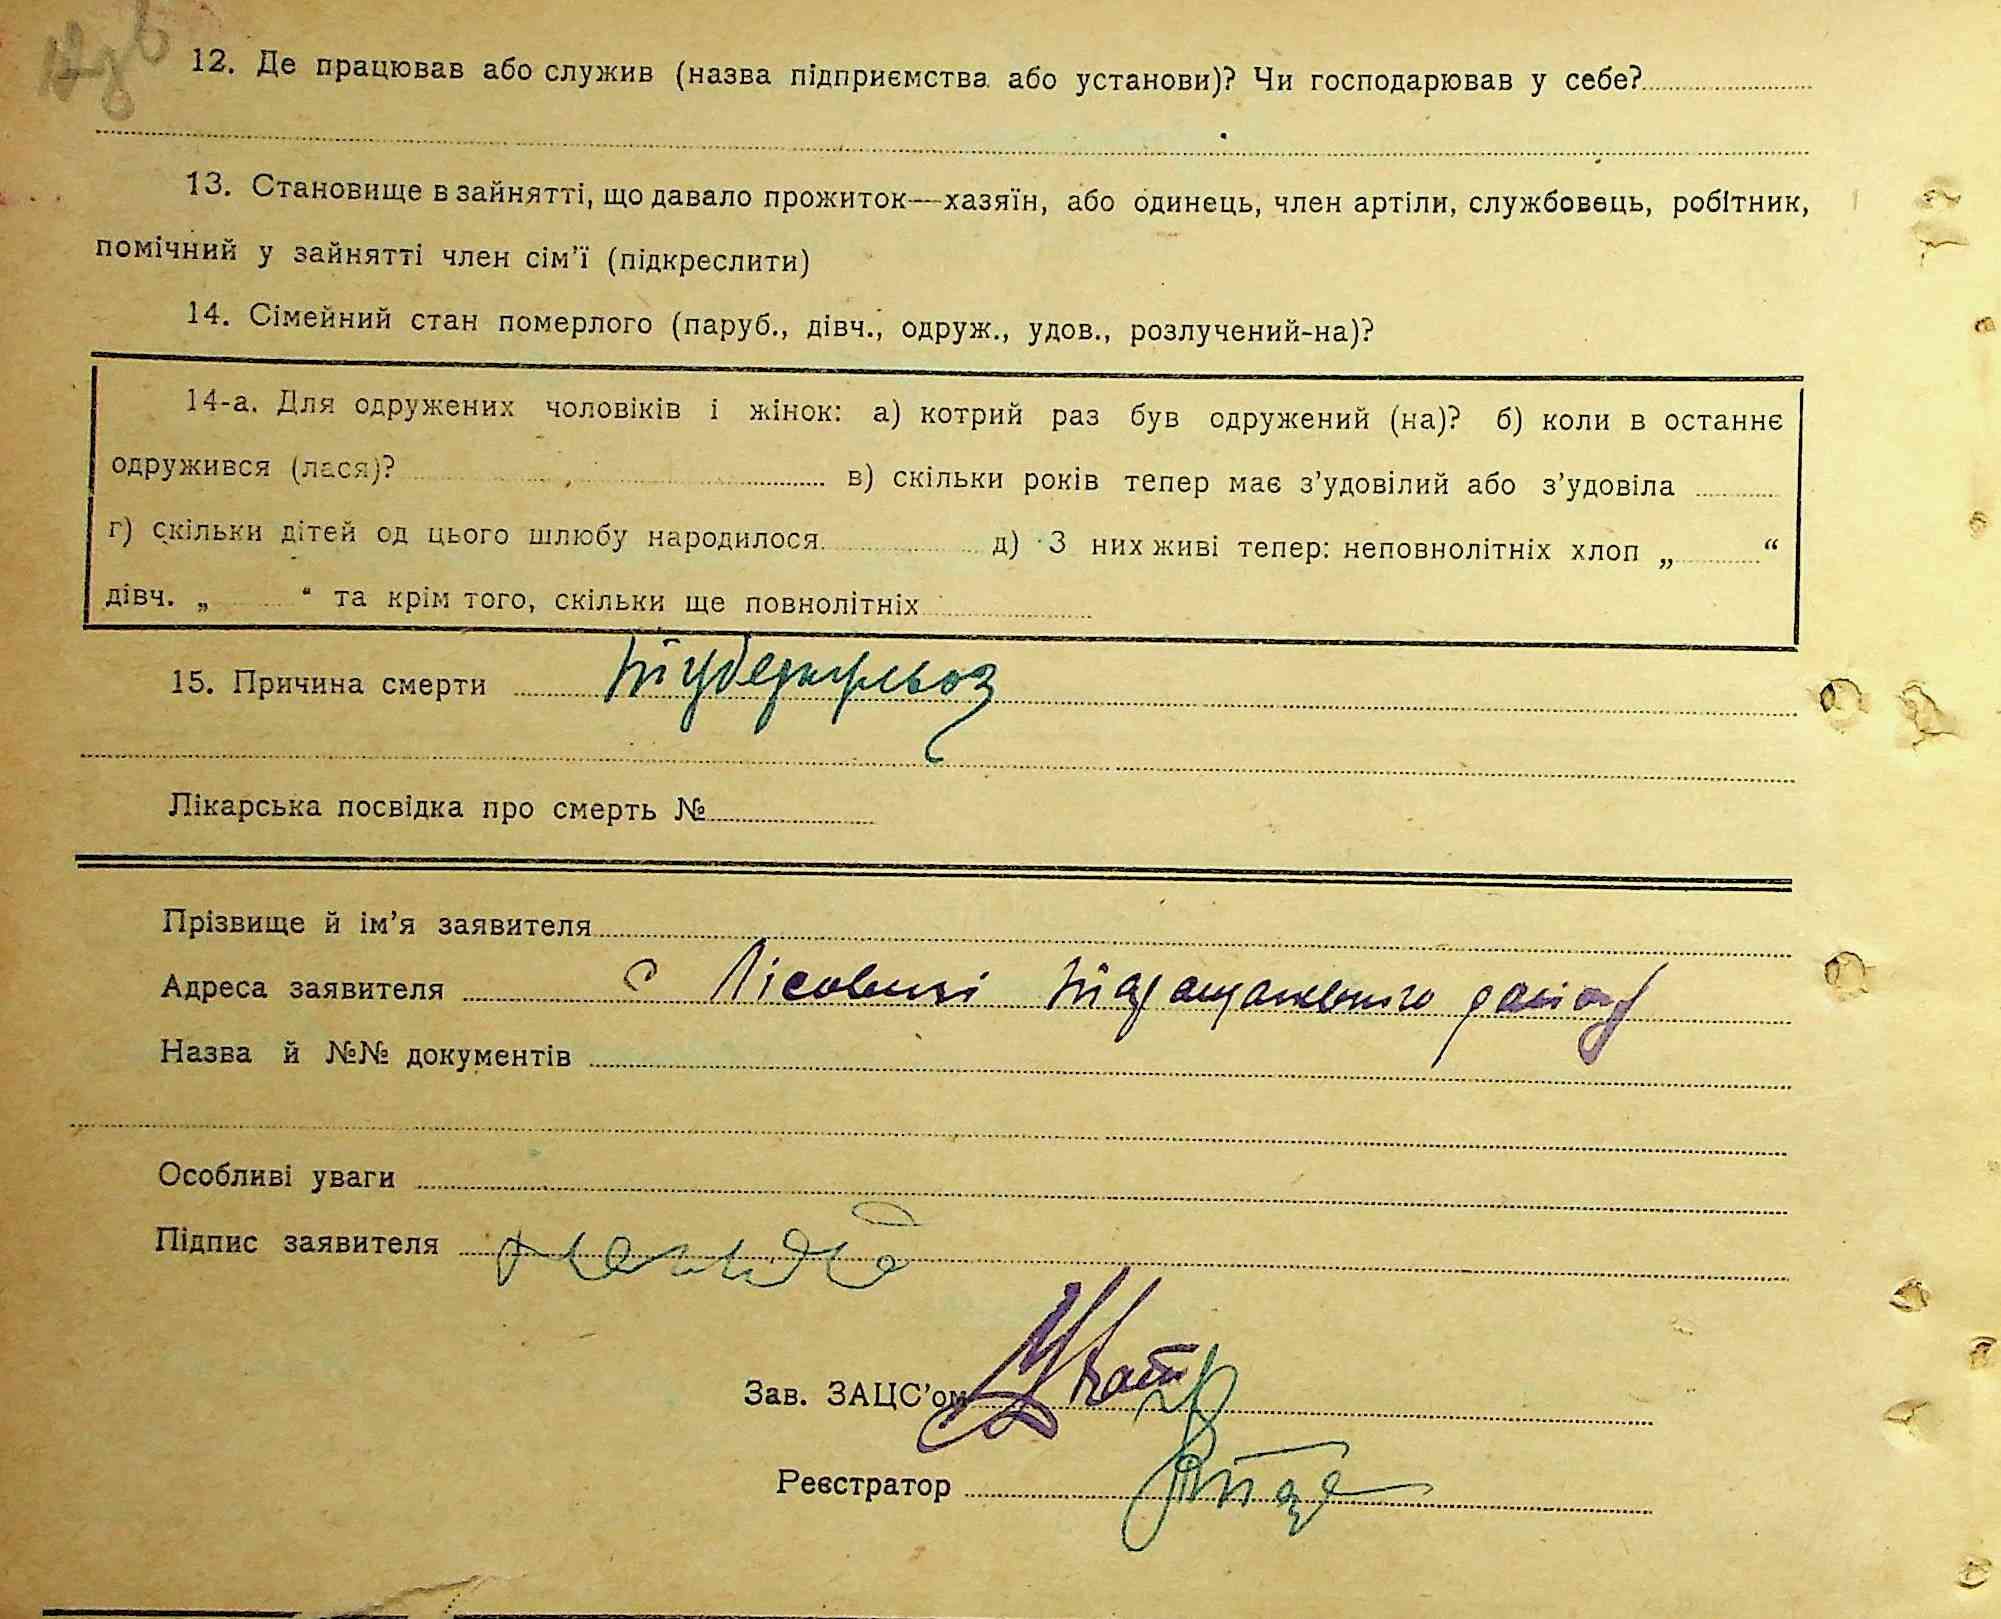 12. Де працював або служив (назва підприємства або установи)? Чи господарював у себе?
13. Становище в зайнятті, що давало прожиток—хазяїн, або одинець, член артіли, службовець, робітник,
помічний у зайнятті член сім'ї (підкреслити)
14. Сімейний стан померлого (паруб., дівч., одруж., удов., розлучений-на)?
14-а. Для одружених чоловіків і жінок: а) котрий раз був одружений (на)? б) коли в останнє
одружився (лася)? в) скільки років тепер має з'удовілий або з'удовіла
г) скільки дітей од цього шлюбу народилося д) З них живі тепер: неповнолітніх хлоп „ “
дівч. „ “ та крім того, скільки ще повнолітніх
15. Причина смерти Туберкульоз
Лікарська посвідка про смерть №
Прізвище й ім'я заявителя
Адреса заявителя с Лісовичі Таращанського району
Назва й №№ документів
Особливі уваги
Підпис заявителя
Зав. ЗАЦС'ом
Реєстратор